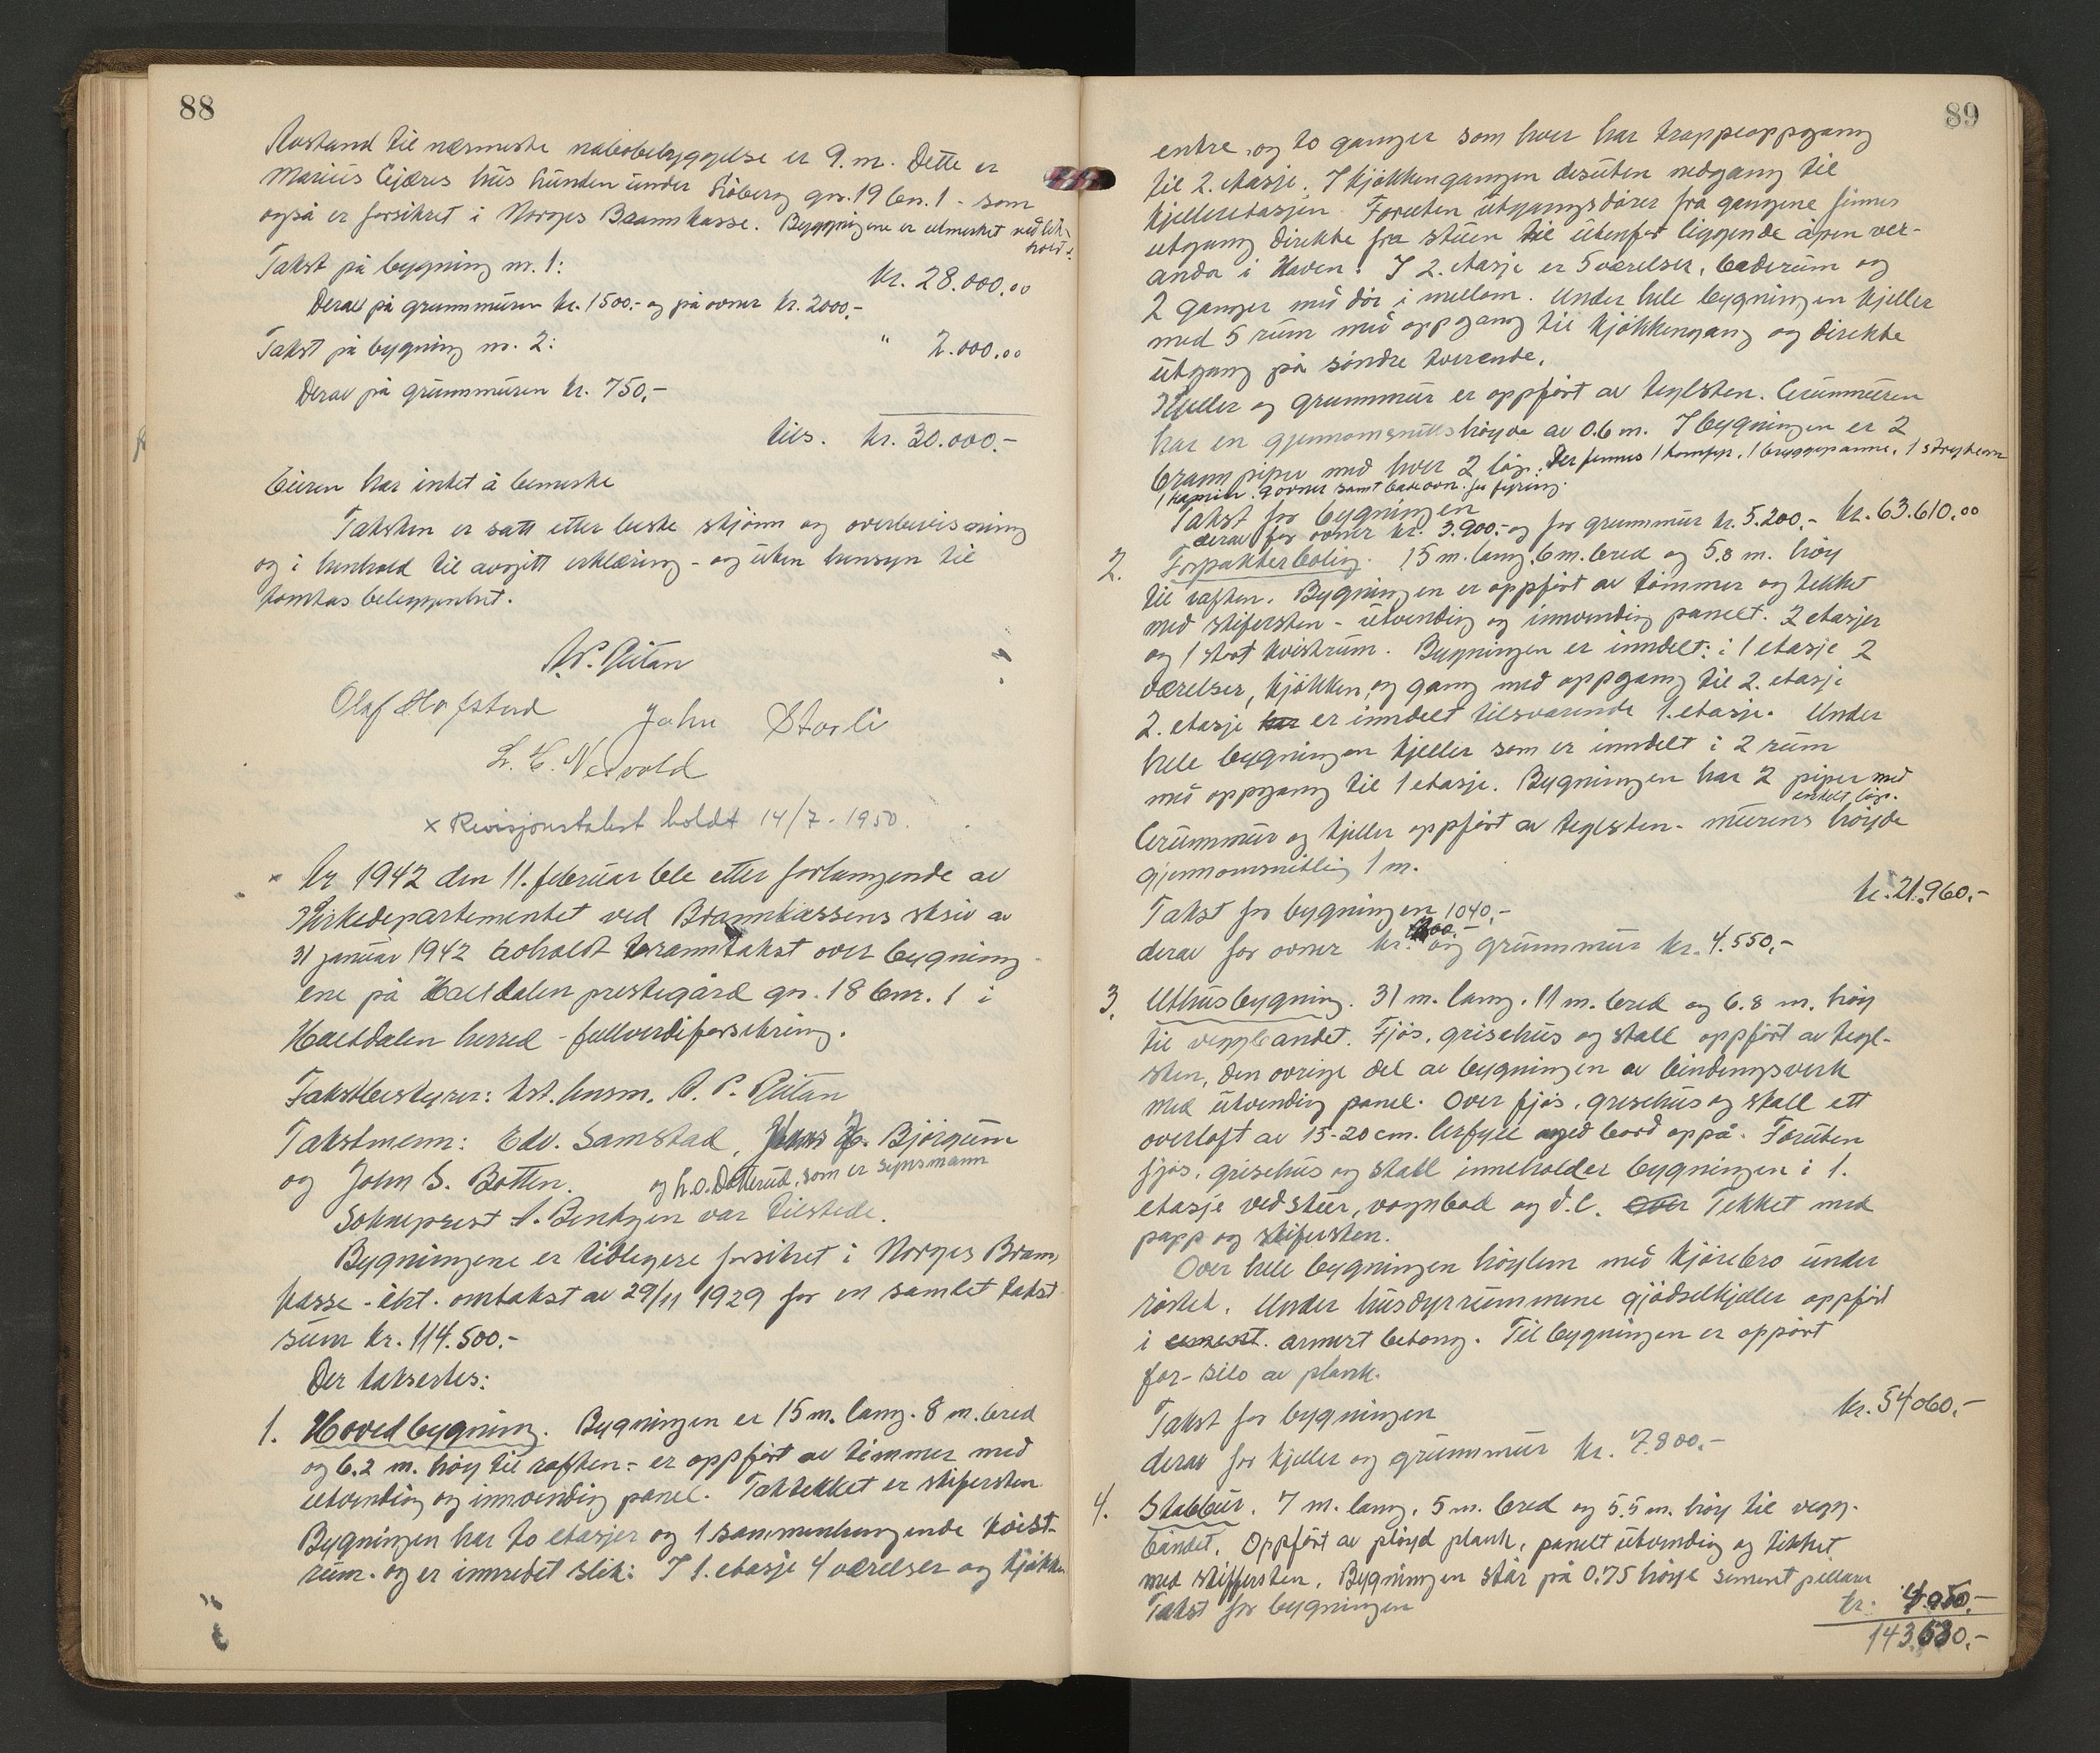 88
Avstand til nærmeste nabobebyggelse er 9. m. Dette er
Marius hus under Sjöberg gnr. 19 bnr. 1 - som
også er forsikret i Norges Brannkasse. Bygningene er utmerket vedlike-
holdt.
Takst på bygning nr. 1: kr. 28.000.00
Derav på grunnmuren kr. 1500.- og på ovner kr. 2000.-
Takst på bygning nr. 2: " 2.000.00
Derav på grunnmuren kr. 750.-
tils. kr. 30.000.-
Eieren har intet å bemerke
Taksten er satt etter beste skjönn og overbevisning
og i henhold til avgitt erklæring - og uten hensyn til
tomtas beleggenhet.
Olaf Hofstad John Storli
x Revisjonstakst holdt 14/7 - 1950.
x År 1942 den 11. februar ble etter forlangende av
Kirkedepartementet ved Brannkassens skriv av
31 januar 1942 avholdt branntakst over bygning-
ene på Haltdalen prestegård gnr. 18 bnr. 1 i
Haltdalen herred - fullverdiforsikring.
Takstbestyrer: kst. lensm. A. P. Gåtan
Takstmenn: Edv. Samstad, Jens H. Bjørgum
og John S. Botten. og H.O. Dotterud, som er synsmann
Sokneprest A. Bentzen var tilstede.
Bygningene er tidligere forsikret i Norges Brann-
kasse - omtakst av 29/11 1929 for en samlet takst-
sum kr. 114.500.-
Der taksertes:
1. Hovedbygning. Bygningen er 15 m. lang. 8 m. bred
og 6.2 m. höy til raften - er oppfört av tömmer med
utvendig og innvendig panel. Taktekket er skifersten.
Bygningen har to etasjer og 1 sammenhengende kvist-
rum. og er innredet slik: I 1. etasje 4 værelser og kjökken
89
entre, og to ganger som hver har trappeoppgang
til 2. etasje. I kjökkengangen desuten nedgang til
kjelleretasjen. Foruten utgangsdörer fra gangene finnes
utgang direkte fra stuen til utenfor liggende åpen ver-
anda i Haven. I 2. etasje er 5 værelser, baderum og
2 ganger med dör i mellom. Under hele bygningen kjeller
med 5 rum med oppgang til kjökkengang og direkte
utgang på söndre tverrende.
Kjeller og grunnmur er oppfört av teglsten. Grunnmuren
har en gjennomsnittshöyde av 0.6 m. I bygningen er 2
brannpiper med hver 2 löp. Der finnes 1 komfyr, 1 bryggepanne, 1
1 kamin. 9 ovner samt badeovn for fyring.
Takst for bygningen kr. 63.610.00
derav for ovner kr. 3.900.- og for grunnmur kr. 5.200.-
2. Forpakterbolig. 15 m. lang. 6 m. bred og 5.8 m. höy
til raften. Bygningen er oppfört av tömmer og tekket
med skifersten - utvendig og innvendig panelt. 2 etasjer
og 1 stort kvistrum. Bygningen er inndelt: i 1 etasje 2
værelser, kjökken, og gang med oppgang til 2. etasje
2. etasje har er inndelt tilsvarende 1. etasje. Under
hele bygningen kjeller som er inndelt i 2 rum
med oppgang til 1 etasje. Bygningen har 2 piper med
enkelt löp.
Grunnmur og kjeller oppfört av teglsten - murens höyde
gjennomsnittlig 1 m.
Takst for bygningen kr. 21.960.-
1040.-
derav for ovner kr. og grunnmur kr. 4.550.-
3. Uthusbygning. 31 m. lang. 11 m. bred og 6.8 m. höy
til veggbandet. Fjös, grisehus og stall oppfört av tegl-
sten, den övrige del av bygningen av bindingsverk
med utvendig panel. Over fjös, grisehus og stall ett
overloft av 15-20 cm. lerfyll med bord oppå. Foruten
fjös, grisehus og stall inneholder bygningen i 1.
etasje vedskur, vognbod og d.l. Over Tekket med
papp og skifersten.
Over hele bygningen höylem med kjörebro under
röstet. Under husdyrrummene gjödselkjeller oppfört
i cement. armert betong. Til bygningen er oppört
for- silo av plank.
Takst for bygningen kr. 54.060.-
derav for kjeller og grunnmur kr. 7.800.-
4. Stabbur. 7 m. lang, 5 m. bred og 5.5 m. höy til vegg-
bandet. Oppfört av plöyd plank, panelt utvendig og tekket
med skiffersten. Bygningen står på 0.75 höye sement pellarer
Takst for bygningen kr.